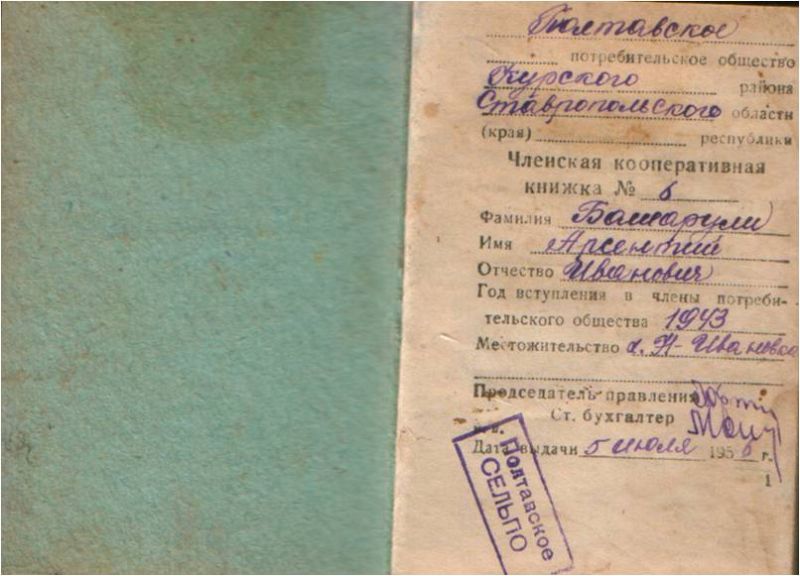 Полтавское
потребительское общество
Курского района
Ставропольского области
(края) республики
Членская кооперативная
книжка № 6
Фамилия
Имя Арсентий
Отчество Иванович
Год вступления в члены потреби-
тельского общества 1943
Местожительство
Председатель правления
Ст. бухгалтер
Дата выдачи 5 июля 1956 г.
1
Полтавское
СЕЛЬПО